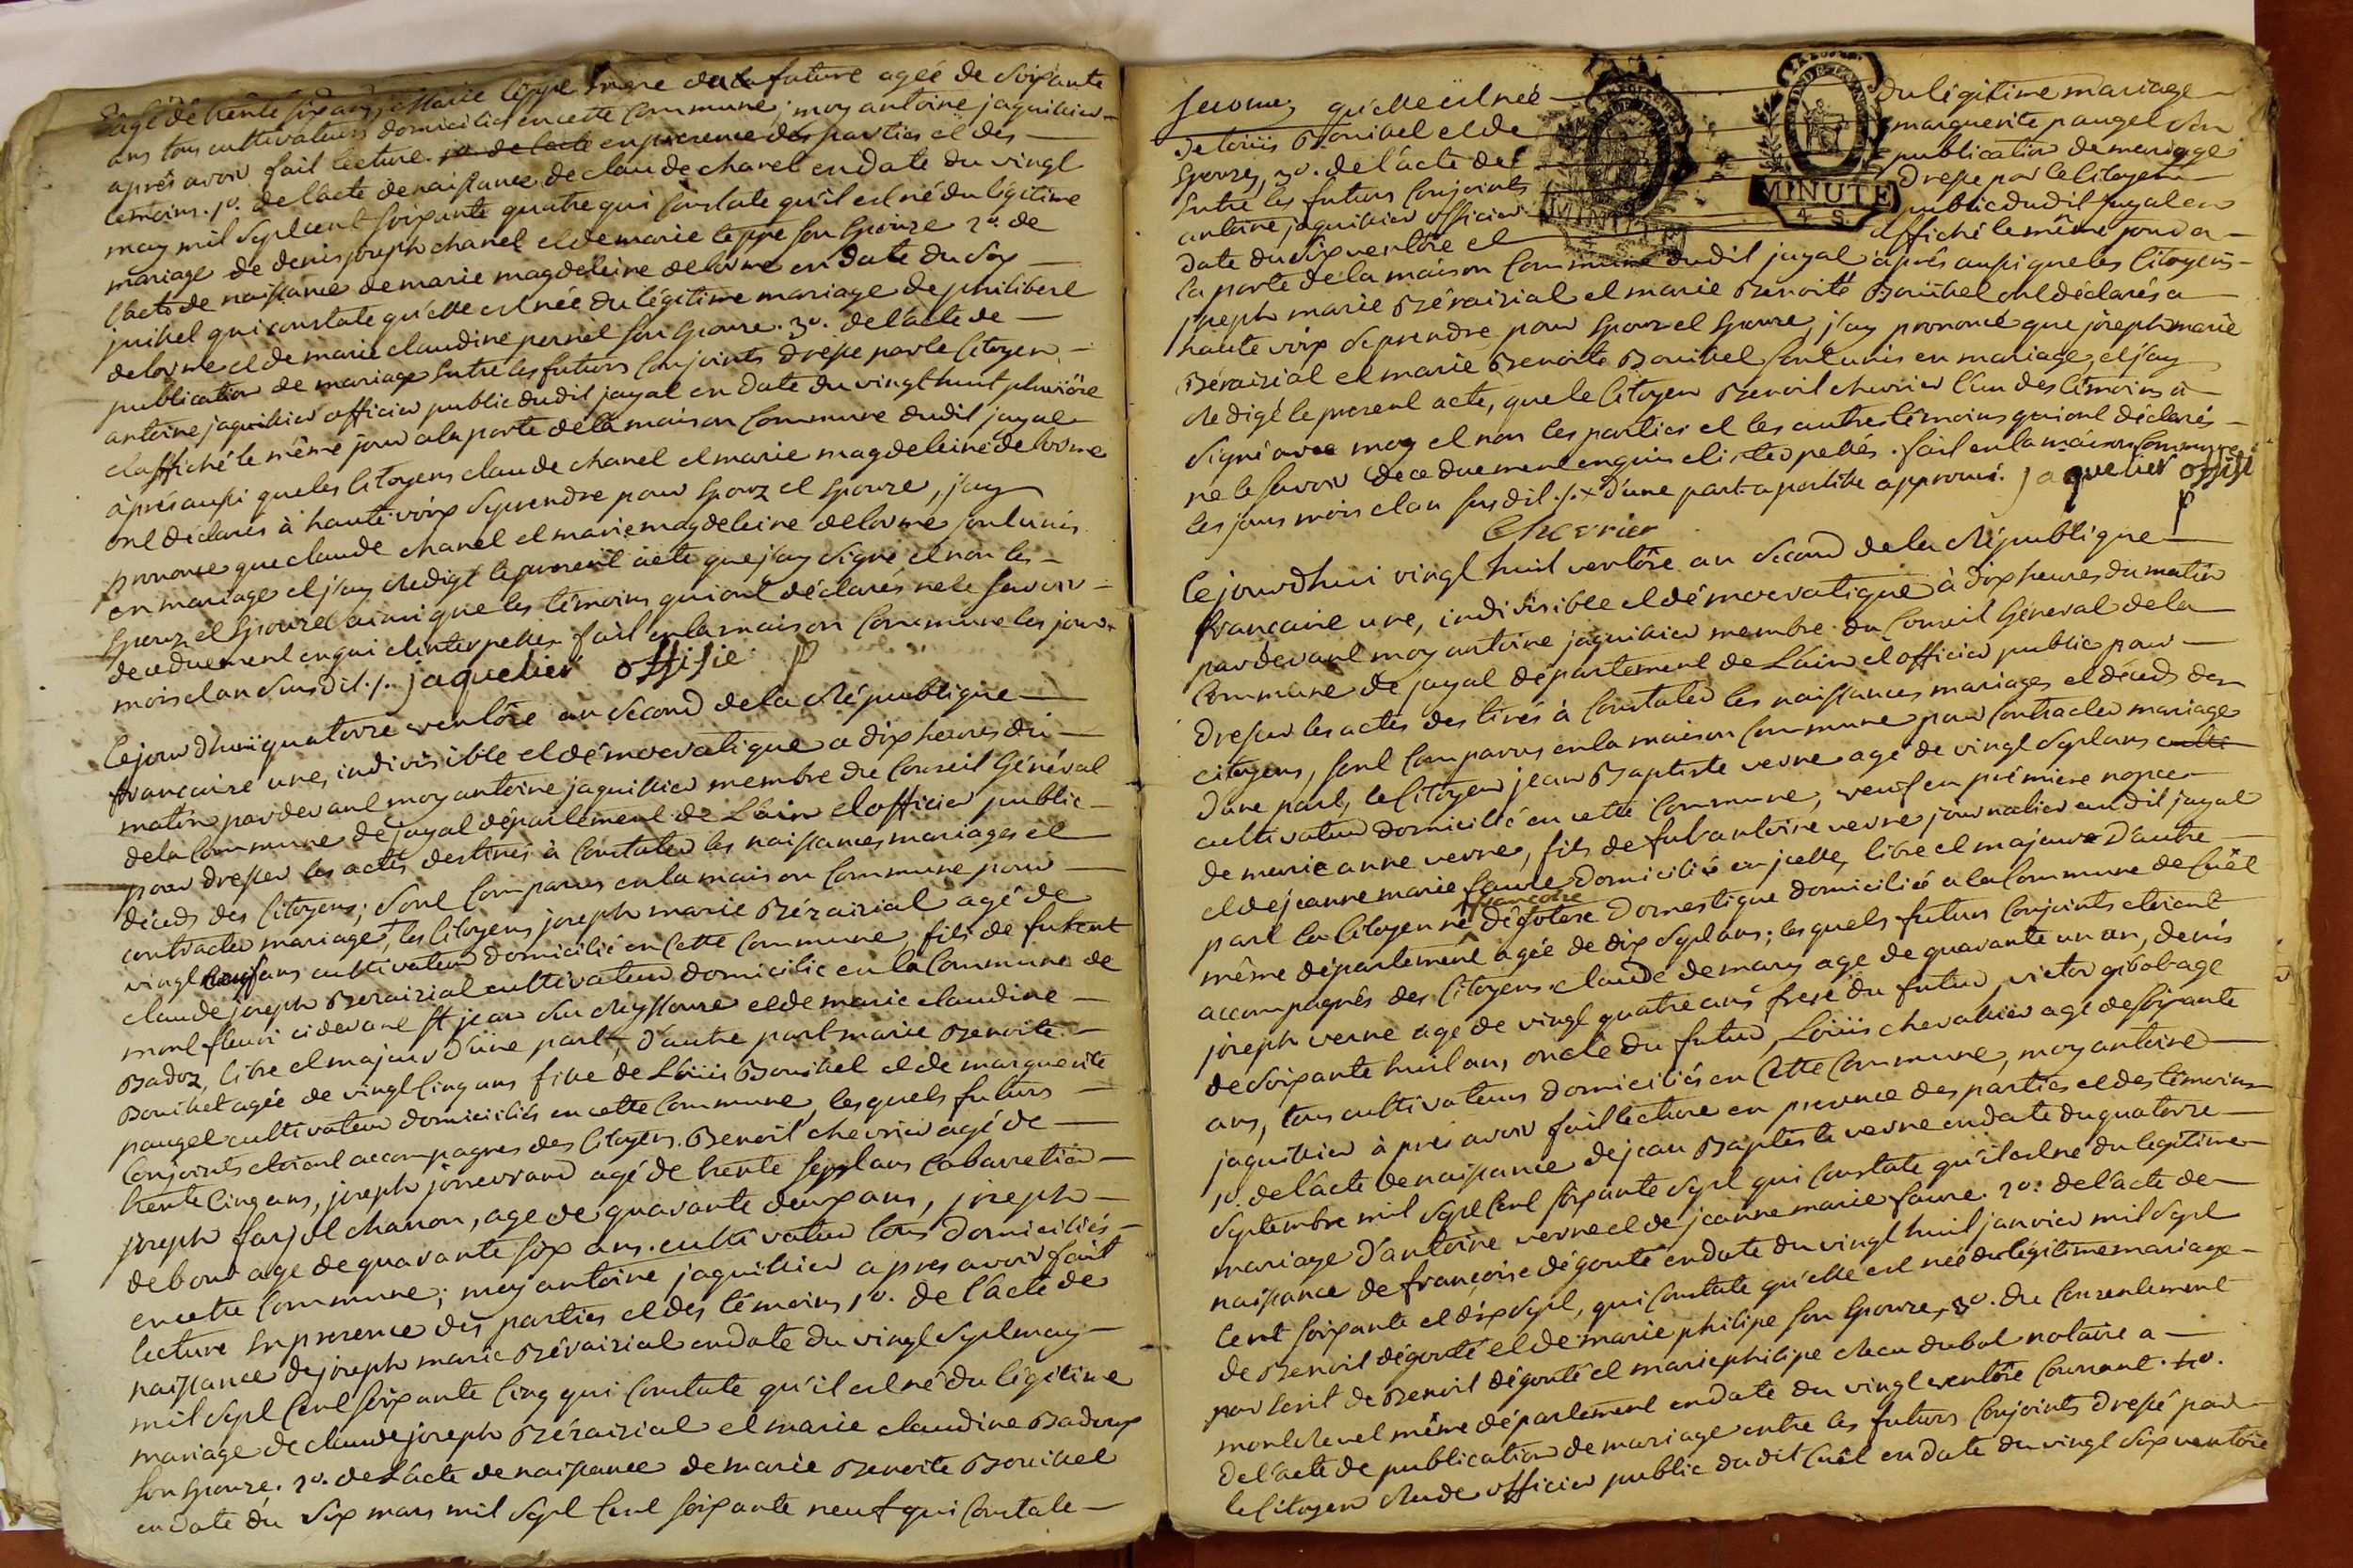 agé de trente six ans, marie teppe mere de la future agée de soixante
ans tous cultivateurs domiciliés en cette commune; moy antoine jaquillier
aprés avoir fait lecture 1º. de l'acte en presence des parties et des
temoins. 1º. de l'acte de naissance de claude chanel en date du vingt
may mil sept cent soixante quatre qui constate qu'il est né du légitime
mariage de denis joseph chanel et de marie teppe son epouze 2º. de
l'acte de naissance de marie magdeleine delorme en date du six
juillet qui constate qu'elle est née du légitime mariage de philibert
delorme et de marie claudine pernet son epouze. 3º. de l'acte de
publication de mariage entre les futurs conjoints dressé par le citoyen
antoine jaquillier officier public dudit jayat en date du vingt huit pluviôse
et affiché le même jour a la porte de la maison commune dudit jayat
après aussi que les citoyens claude chanel et marie magdeleine delorme
ont déclarés à haute voix se prendre pour epoux et epouze, j'ay
prononcé que claude chanel et marie magdeleine delorme sont unis
en mariage et j'ay redigé le present acte que j'ay signé, et non les
epoux et epouze ainsi que les témoins qui ont déclarés ne le savoir
de ce duement enquis et interpellés fait en la maison commune les jour
mois et an susdit ./. jaquelier offisie p
Cejourd'huï quatorze ventôse an second de la République
francaise une, indivisible et démocratique a dix heures du
matin pardevant moy antoine jaquillier membre du Conseil Général
de la commune de jayat département de L'ain et officier public
pour dresser les actes destinés à constater les naissances mariages et
décès des citoyens; sont comparus en la maison commune pour
contracter mariage, les citoyens joseph marie Bérairial agé de
vingt neuf ans cultivateur domicilié en cette commune, fils de fut ent
claude joseph Berairial cultivateur domicilié en la commune de
mont fleuri cidevant st jean sur Reyssouze et de marie claudine
Badoz, libre et majeur d'une part, d'autre part marie Benoite
Bouibet agée de vingt cinq ans fille de Loüis Bouibet et de marguerite
pauget cultivateur domiciliés en cette commune, lesquels futurs
conjoints etoient accompagnes des citoyens. Benoit chevrier agé de
trente cinq ans, joseph joisseurand agé de trente sept ans cabaretier
joseph farjot chanon, age de quarante deux ans, joseph
debout age de quarante six ans. cultivateur tous domiciliés
en cette commune; moy antoine jaquillier apres avoir fait
lecture en presence des parties et des témoins, 1º. de l'acte de
naissance de joseph marie Bérairial en date du vingt sept may
mil sept cent soixante cinq qui constate qu'il est né du légitime
mariage de claude joseph Bérairial et marie claudine Badoux
son epouze. 2º. de l'acte de naissance de marie Benoite Bouibet
en date du six mars mil sept cent soixante neuf qui constate
qu'elle est née du légitime mariage
de loüis Bouibet et de marguerite pauget son
epouze, 3º. de l'acte de publication de mariage
entre les futurs conjoints dressé par le citoyen
antoine jaquillier officier public dudit jayat en
date du six ventôse et affiché le même jour a
MINUTE
MINUTE
4 S
la porte de la maison commune dudit jayat après aussi que les citoyens
joseph marie Bérairial et marie Benoite Bouibet ont déclarés a
haute voix se prendre pour epoux et epouze, j'ay prononcé que joseph marie
Bérairial et marie Benoite Bouibet sont unis en mariage, et j'ay
Redigé le present acte, que le citoyen Benoit chevrier l'un des témoins à
signé avec moy et non les parties et les autres témoins qui ont déclarés
ne le savoir de ce duement enquis et interpellés. fait en la maison commune
les jours mois et an susdit ./. x d'une part apostille approuvé. jaquelier offisi
Chevrier p
Cejourdhui vingt huit ventôse an second de la République
francaise une, indivisible et démocratique à dix heures du matin
pardevant moy antoine jaquillier membre du Conseil Géneral de la
commune de jayat département de L'ain et officier public pour
dresser les actes destinés à constater les naissances mariages et décès des
citoyens, sont comparus en la maison commune pour contracter mariage
d'une part, le citoyen jean Baptiste verne agé de vingt sept ans culti
cultivateur domicilié en cette commune, veuf en première nopce
de marie anne verne, fils de fut antoine verne journalier audit jayat
et de jeanne marie faure domicilié en icelle, libre et majeur D'autre
françoise
part la citoyenne dégoutte domestique domicilié a la commune de Cuêt
même département agée de dix sept ans; lesquels futurs conjoints etoient
accompagnés des citoyens claude demary age de quarante un an, denis
joseph verne age de vingt quatre ans frere du futur, victor gibot age
de soixante huit ans, oncle du futur, Loüis chevallier age de soixante
ans, tous cultivateurs domiciliés en cette commune, moy antoine
jaquillier à prés avoir fait lecture en presence des parties et des témoins
1º. de l'acte de naissance de jean Baptiste verne en date du quatorze
septembre mil sept cent soixante sept qui constate qu'il est né du légitime
mariage d'antoine verne et de jeanne marie faure. 2º. de l'acte de
naissance de françoise dégoutte en date du vingt huit janvier mil sept
cent soixante et dix sept, qui constate qu'elle est née du légitime mariage
de Benoit dégoutté et de marie philipe son epouze, 3º. du consentement
par ecrit de Benoit dégoutté et marie philipe Recu dubat notaire a
montrevel même département en date du vingt ventôse courrant. 4º.
de l'acte de publication de mariage entre les futurs conjoints dressé par
le citoyen Rude officier public dudit Cuêt en date du vingt six ventôse